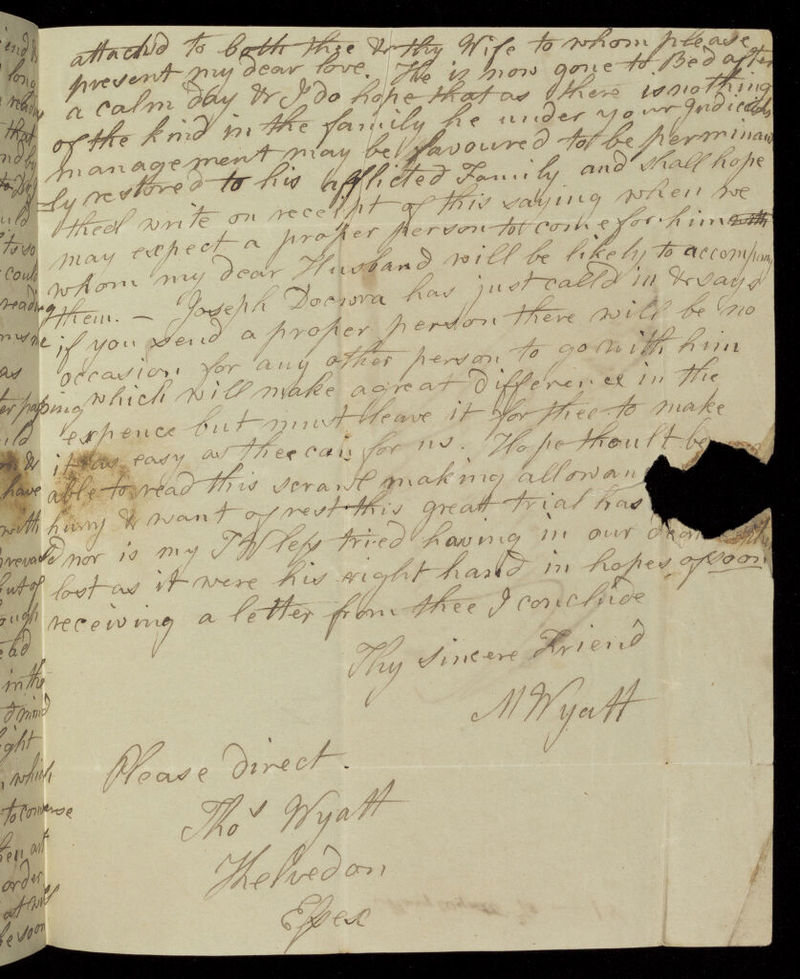 attach'd to both thee & thy Wife to whom please
present my dear love. He is now gone to Bed after
a calm day & I do hope that as there is nothing
of the kind in the family he under your Judicious
management may be favoured to be perminant
ly restored to his afflicted Family and shall hope
theel write on receipt of this saying when we
may expect a proper person to come for him
whom my dear Husband will be likely to accompany
them. — Joseph Docwra has just calld in & says
if you send a proper person there will be no
occasion for any other person to go with him
which will make a great difference in the
expence but must leave it for thee to make
it as easy as thee can for us. Hope thoult be
able to read this scrawl making allowan
hurry & want of rest this great trial has
nor is my TW less tried having in our dear
lost as it were his right hand in hopes of soon
receiving a letter from thee I conclude
Thy sincere Friend
M Wyatt
Please direct.
Thos Wyatt
Kelvedon
Essex